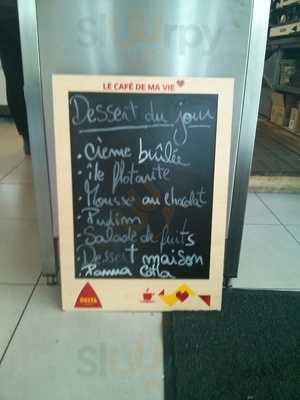 Slurrpy
LE CAFÉ DE MA VIE
Dessert du jour
• Cième brûlée
• île flotante
• Mousse au chocolat
• Pudim
Salade de fuits
Dessert maison
• Panna Cota
DELTA